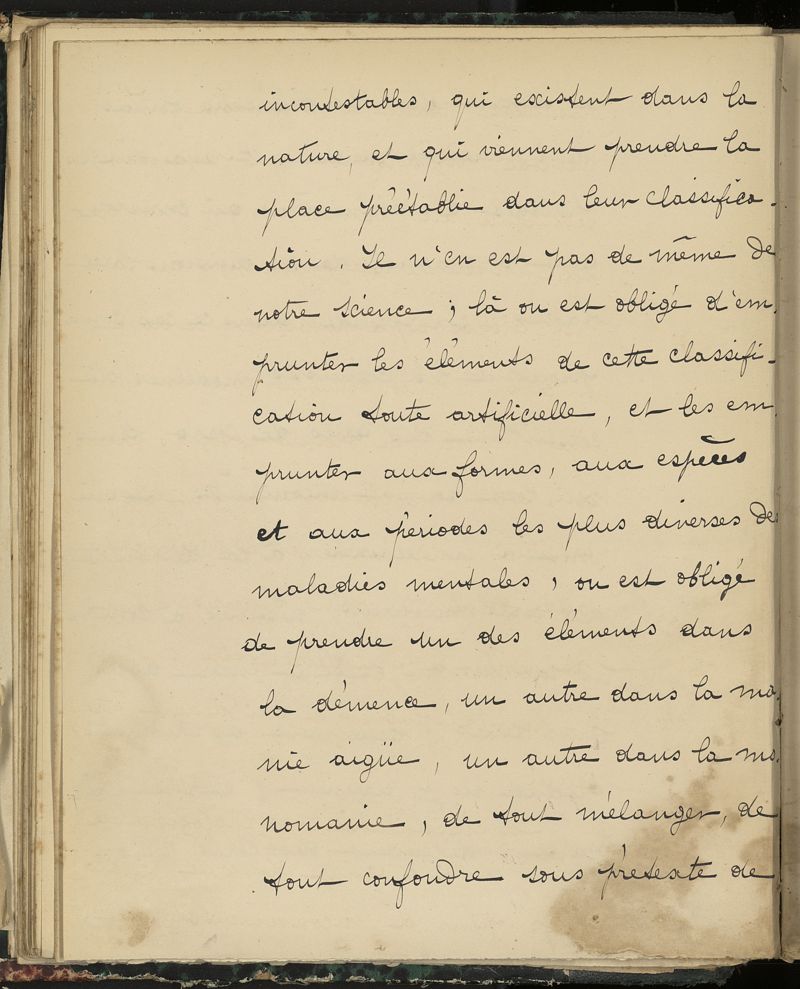 incontestables, qui existent dans la
nature, et qui viennent prendre la
place préétablie dans leur classifica-
tion. Il n'en est pas de même de
notre science ; là on est obligé d'em-
prunter les éléments de cette classifi-
cation toute artificielle, et les em-
prunter aux formes, aux espèces
et aux périodes les plus diverses de
maladies mentales, on est obligé
de prendre un des éléments dans
la démence, un autre dans la ma-
nie aigüe, un autre dans la mo-
nomanie, de tout mélanger, de
tout confondre sous prétexte de